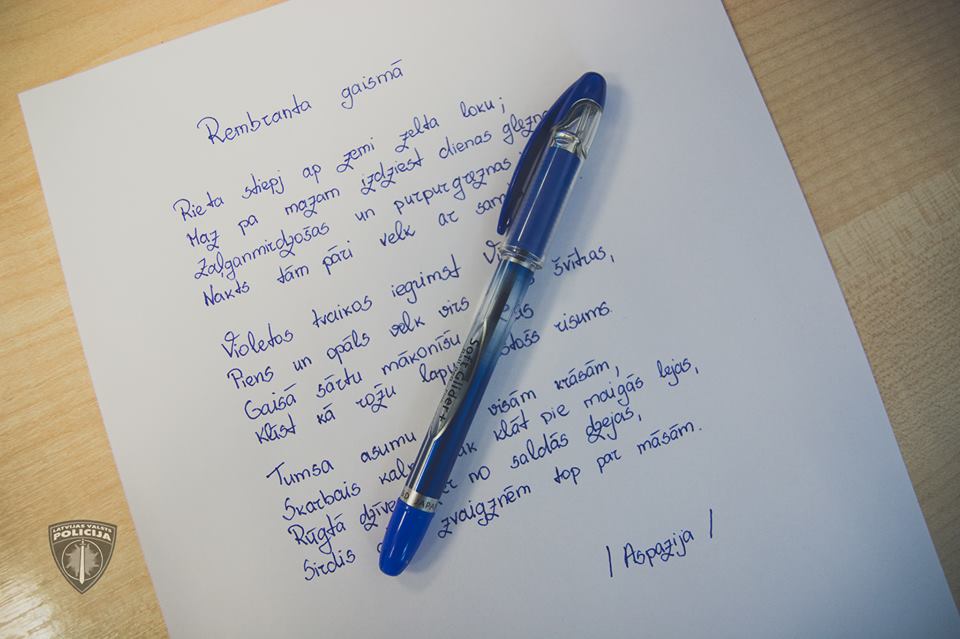 Rembranta gaismā
Rieta stiepj ap zemi zelta loku;
Maz pa mazam izdziest dienas
Zaļganmirdzošas un purpurgreznas
Nakts tām pāri velk ar
Violetos tvaikos iegrimst
Piens un opāls velk virs švītras,
Gaisā sārtu mākonīšu
Klīst kā rožu risums.
Tumsa asumu visām krāsām,
Skarbais klāt pie maigās lejas,
Rūgtā no saldās dzejas,
Sirdis zvaigznēm top par māsām.
/ Aspazija /
Soft Glider+
LATVIJAS VALSTS
POLICIJA